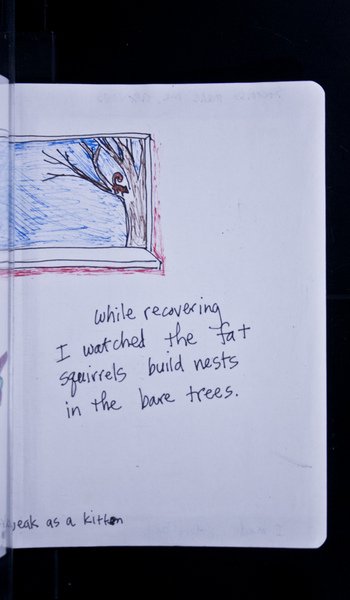 while recovering
I watched the fat
squirrels build nests
in the bare trees.
weak as a kitten